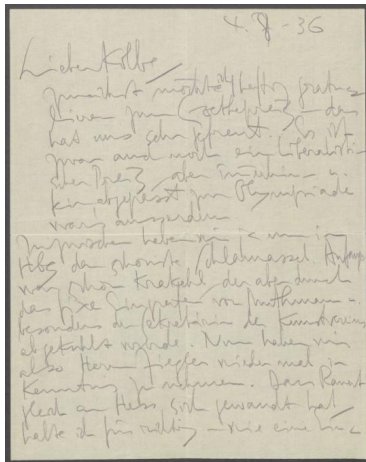 4. 8 - 36
Lieber Kolbe
Zunächst möchte ich heftig gratu
lieren zum Goethepreis - das
hat uns sehr gefreut. Es ist
zwar auch noch ein Liberalisti
scher Preis, aber immerhin u.
zur Olympiade
war's ausserdem
Inzwischen haben wir ja nun in
Hbg den schönsten Schlamassel. Anfangs
war schon Krakehl der aber durch
das fixe Eingreifen von u.
besonders der Sekretärin des Kunstvereins
abgekühlt wurde. Nun haben wir
also Herrn Ziegler wieder mal in
Kenntnis zu nehmen. Dass
gleich an Hess sich gewandt hat
halte ich für richtig - wie eine